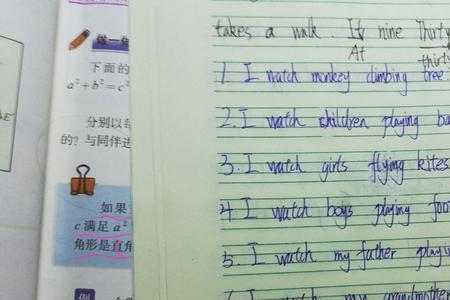 做一做
下面的
a²+b²=c²
分别以每
的？与同伴进
如果
c 满足 a²
角形是直角
takes a walk. It nine Thirty
At thirty
1. I watch monkey climbing tree.
2. I watch children playing ba
3. I watch girls flying kites
4. I watch boys playing foo
5. I watch my father playin
I watch my grandmother